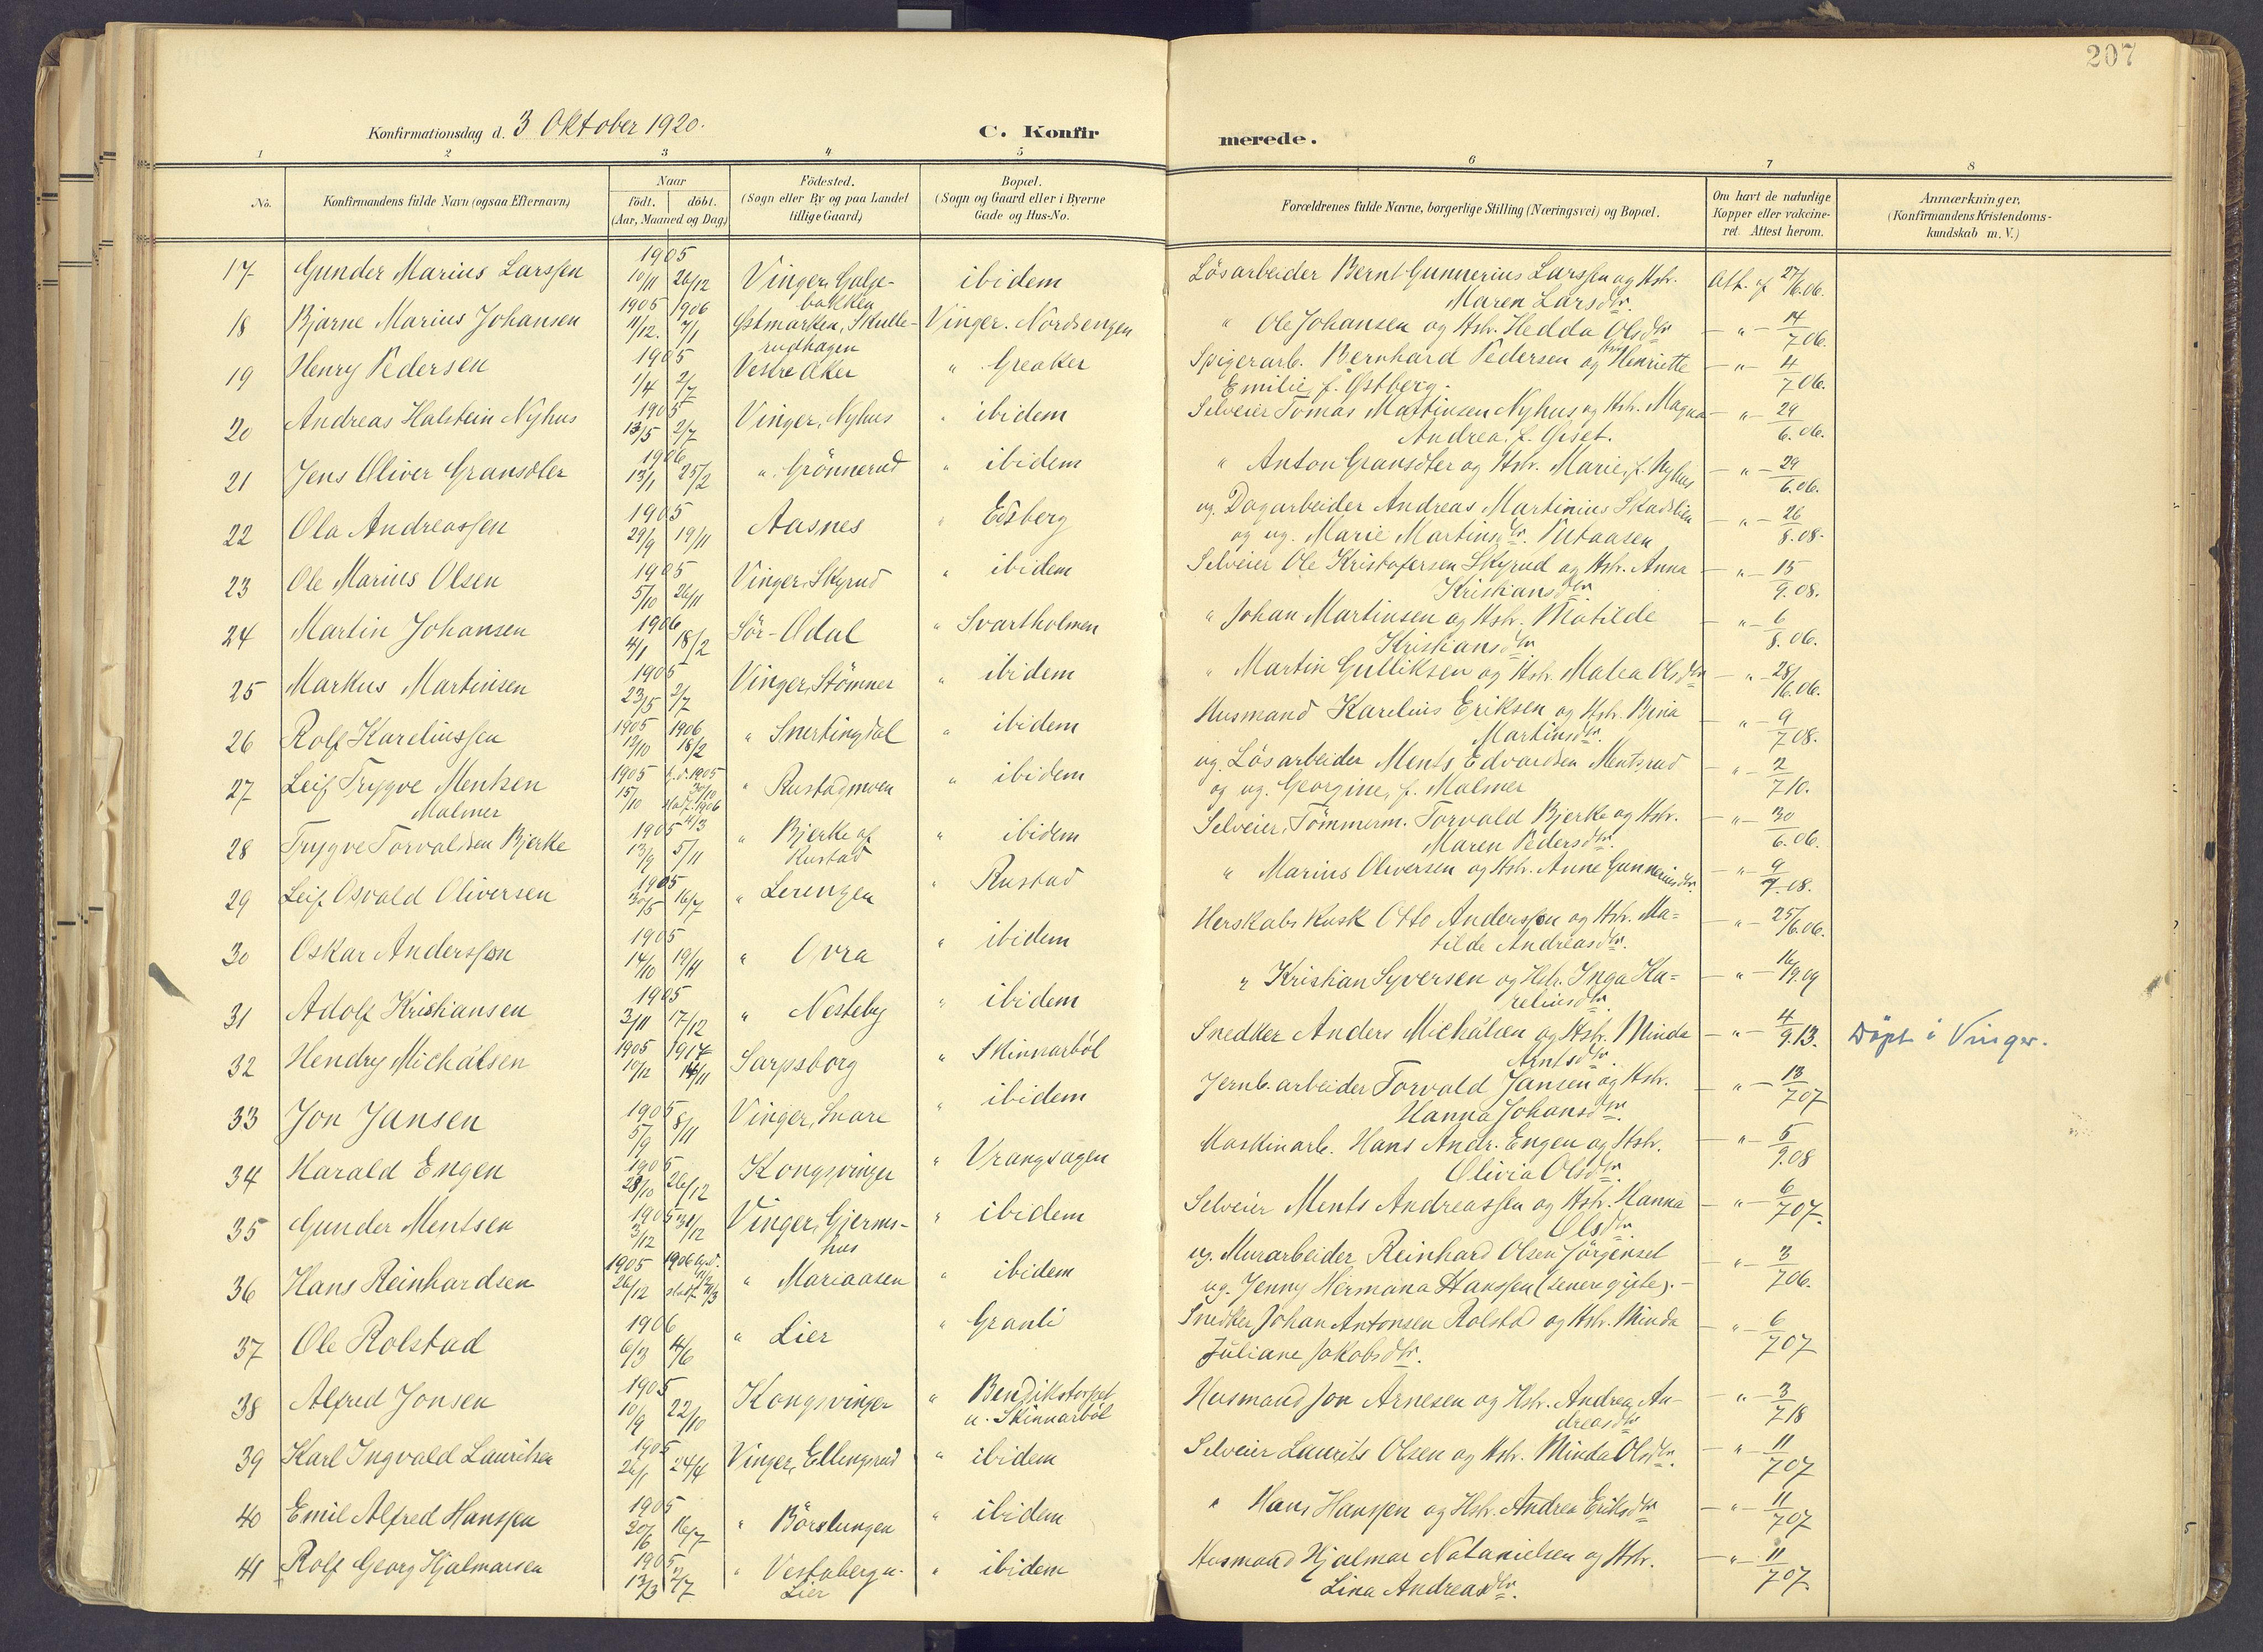 207
Konfirmationsdag d. 3 Oktober 1920.
C. Konfir
merede.
1 2 3 4 5 6 7 8
No.
Konfirmandens fulde Navn (ogsaa Efternavn)
Naar
födt. döbt.
(Aar, Maaned og Dag)
Födested.
(Sogn eller By og paa Landet
tillige Gaard)
Bopæl.
(Sogn og Gaard eller i Byerne
Gade og Hus-No.
Forældrenes fulde Navne, borgerlige Stilling (Næringsvei) og Bopæl.
Om havt de naturlige
Kopper eller vakcine-
ret. Attest herom.
Anmærkninger,
(Konfirmandens Kristendoms-
kundskab m. V.)
17 Gunder Marius Larssen 1905 10/11 26/12 Vinger, Galge- ibidem Lösarbeider Bernt Gunnerius Larssen og Hstr. Att. af 27/6.06.
bakken Maren Larsdtr.
18 Bjarne Marius Johansen 1905 11/12. 1906 7/1 Østmarken, Skulle- Vinger. Nordsengen " Ole Johansen og Hstr. Hedda Olsdtr — " — 14/7 06.
rudhagen
19 Henry Pedersen 1905 1/4 2/7 Vestre Aker " Greaker Spigerarb. Bernhard Pedersen og Hstr. Henriette — " — 4/7 06.
Emilie, f. Østberg.
20 Andreas Halstein Nyhus 1905 13/5 2/7 Vinger, Nyhus " ibidem Selveier Tomas Martinsen Nyhus og Hstr. Magna — " — 29/6.06.
Andrea, f. Øiset.
21 Jens Oliver Gransdter 1906 13/1 25/2 " Grönnerud " ibidem " Anton Gransdter og Hstr. Marie, f. Nyhus — " — 29/6.06.
22 Ola Andreassen 1905 29/9 19/11 Aasnes " Edsberg ug. Dagarbeider Andreas Martinius Skadslien — " — 26/8.08.
og ug. Marie Martinsdtr.
23 Ole Marius Olsen 1905 5/10 26/11 Vinger, Skyrud " ibidem Selveier Ole Kristofersen Skyrud og Hstr. Anna — " — 15/9.08.
Kristiansdtr
24 Martin Johansen 1906 4/1 18/2 Sör-Odal " Svartholmen " Johan Martinsen og Hstr. Matilde — " — 6/8.06.
Kristiansdtr
25 Markus Martinsen 1905 23/5 2/7 Vinger, Stömner " ibidem " Martin Gulliksen og Hstr. Malea Olsdtr — " — 28/6.06.
26 Rolf Kareliussen 1905 12/10 1906 18/2 " Snertingdal " ibidem Husmand Karelius Eriksen og Hstr. Bina — " — 9/7 08.
Martinsdtr.
27 Leif Trygve Mentsen 1905 15/10 h.d. 1905 30/10 stadf. 1906 11/3 " Rustadmoen " ibidem ug. Lösarbeider Ments Edvardsen Mentsrud — " — 2/7 10.
Malmer og ug. Georgine, f. Malmer
28 Trygve Torvaldsen Bjerke 1905 13/9 5/11 " Bjerke af " ibidem Selveier, Tömmerm. Torvald Bjerke og Hstr. — " — 30/6.06.
Rustad Maren Pedersdtr.
29 Leif Osvald Oliversen 1905 30/5 16/7 " Lerengen " Rustad " Marius Oliversen og Hstr. Anne Gunneriusdtr. — " — 9/9.08.
30 Oskar Anderssøn 1905 14/10 19/11 " Ovra " ibidem Herskabs Kusk Otto Anderssøn og Hstr. Ma= — " — 25/6.06.
tilde Andreasdtr.
31 Adolf Kristiansen 1905 3/11 17/12 " Nesteby " ibidem " Kristian Syversen og Hstr. Inga Ka= — " — 16/9.09
reliusdtr.
32 Hendry Michálsen 1905 10/12 1917 14/11 Sarpsborg " Skinnarböl Snedker Anders Michálsen og Hstr. Minda — " — 4/9.13. Döpt i Vinger.
Arntsdtr.
33 Jon Jansen 1905 5/9 8/11 Vinger, Snare " ibidem Jernb. arbeider Torvald Jansen og Hstr. — " — 13/7 07
Hanna Johansdtr.
34 Harald Engen 1905 28/10 26/12 Kongsvinger " Vrangsagen Maskinarb. Hans Andr. Engen og Hstr. — " — 5/9.08
Olivia Olsdtr.
35 Gunder Mentsen 1905 3/12 31/12 Vinger, Gjerms- " ibidem Selveier Ments Andreassen og Hstr. Hanna — " — 6/7 07.
hus Olsdtr.
36 Hans Reinhardsen 1905 26/12 1906 " Mariaasen " ibidem ug. Murarbeider Reinhard Olsen Jörgenset — " — 3/7 06.
ug. Jenny Hermana Hanssen (senere gifte). —
37 Ole Rolstad 1906 6/3 4/6 " Lier " Granli Snedker Johan Antonsen Rolstad og Hstr. Minda — " — 6/7 07
Juliane Jakobsdtr.
38 Alfred Jonsen 1905 10/9 22/10 Kongsvinger " Bendikstorpet Husmand Jon Arnesen og Hstr. Andrea An- — " — 3/7 18
u. Skinnarböl dreasdtr
39 Karl Ingvald Lauritsen 1905 26/1 24/4 Vinger, Ellingsrud " ibidem Selveier Laurits Olsen og Hstr. Minda Olsdtr. — " — 11/7 07
40 Emil Alfred Hanssen 1905 20/6 16/7 " Börslungen " ibidem " Hans Hanssen og Hstr. Andrea Eriksdtr — " — 11/7 07
41 Rolf Georg Hjalmarsen 1905 13/3 2/7 " Vestaberg u. " ibidem Husmand Hjalmar Natanielsen og Hstr. — " — 11/7 07
Lier Lina Andreasdtr.